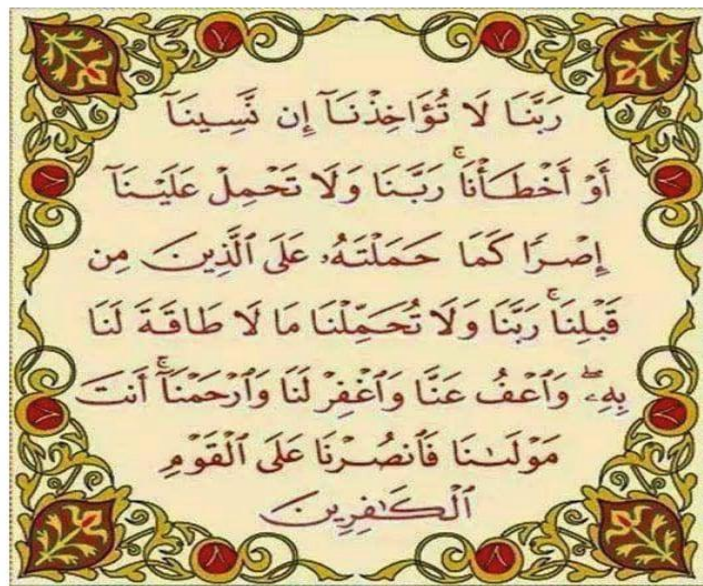 رَبَّنَا لَا تُؤَاخِذْنَآ إِن نَّسِينَآ
أَوْ أَخْطَأْنَا ۚ رَبَّنَا وَلَا تَحْمِلْ عَلَيْنَآ
إِصْرًا كَمَا حَمَلْتَهُۥ عَلَى ٱلَّذِينَ مِن
قَبْلِنَا ۚ رَبَّنَا وَلَا تُحَمِّلْنَا مَا لَا طَاقَةَ لَنَا
بِهِۦ ۖ وَٱعْفُ عَنَّا وَٱغْفِرْ لَنَا وَٱرْحَمْنَآ ۚ أَنتَ
مَوْلَىٰنَا فَٱنصُرْنَا عَلَى ٱلْقَوْمِ
ٱلْكَـٰفِرِينَ